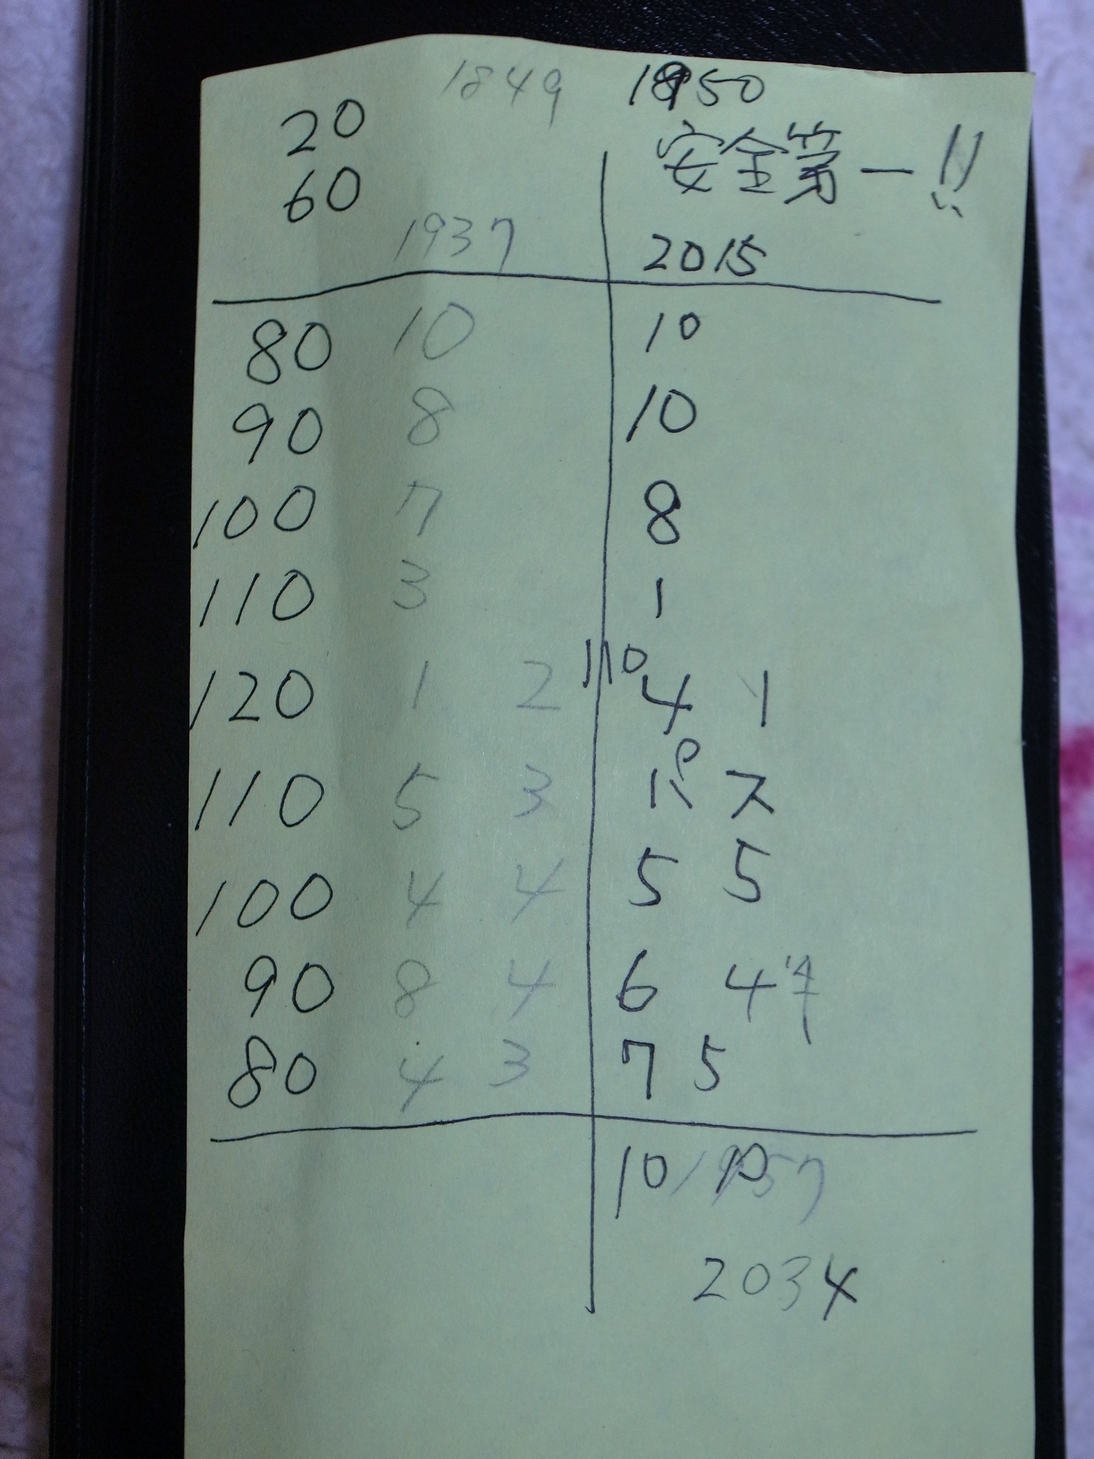 1849 1950
20 安全第一!!
60
1937 2015
80 10 10
90 8 10
100 7 8
110 3 1
110
120 1 2 4 1
110 5 3 パス
100 4 4 5 5
90 8 4 6 4
80 4 3 7 5
10 10 1957
2034